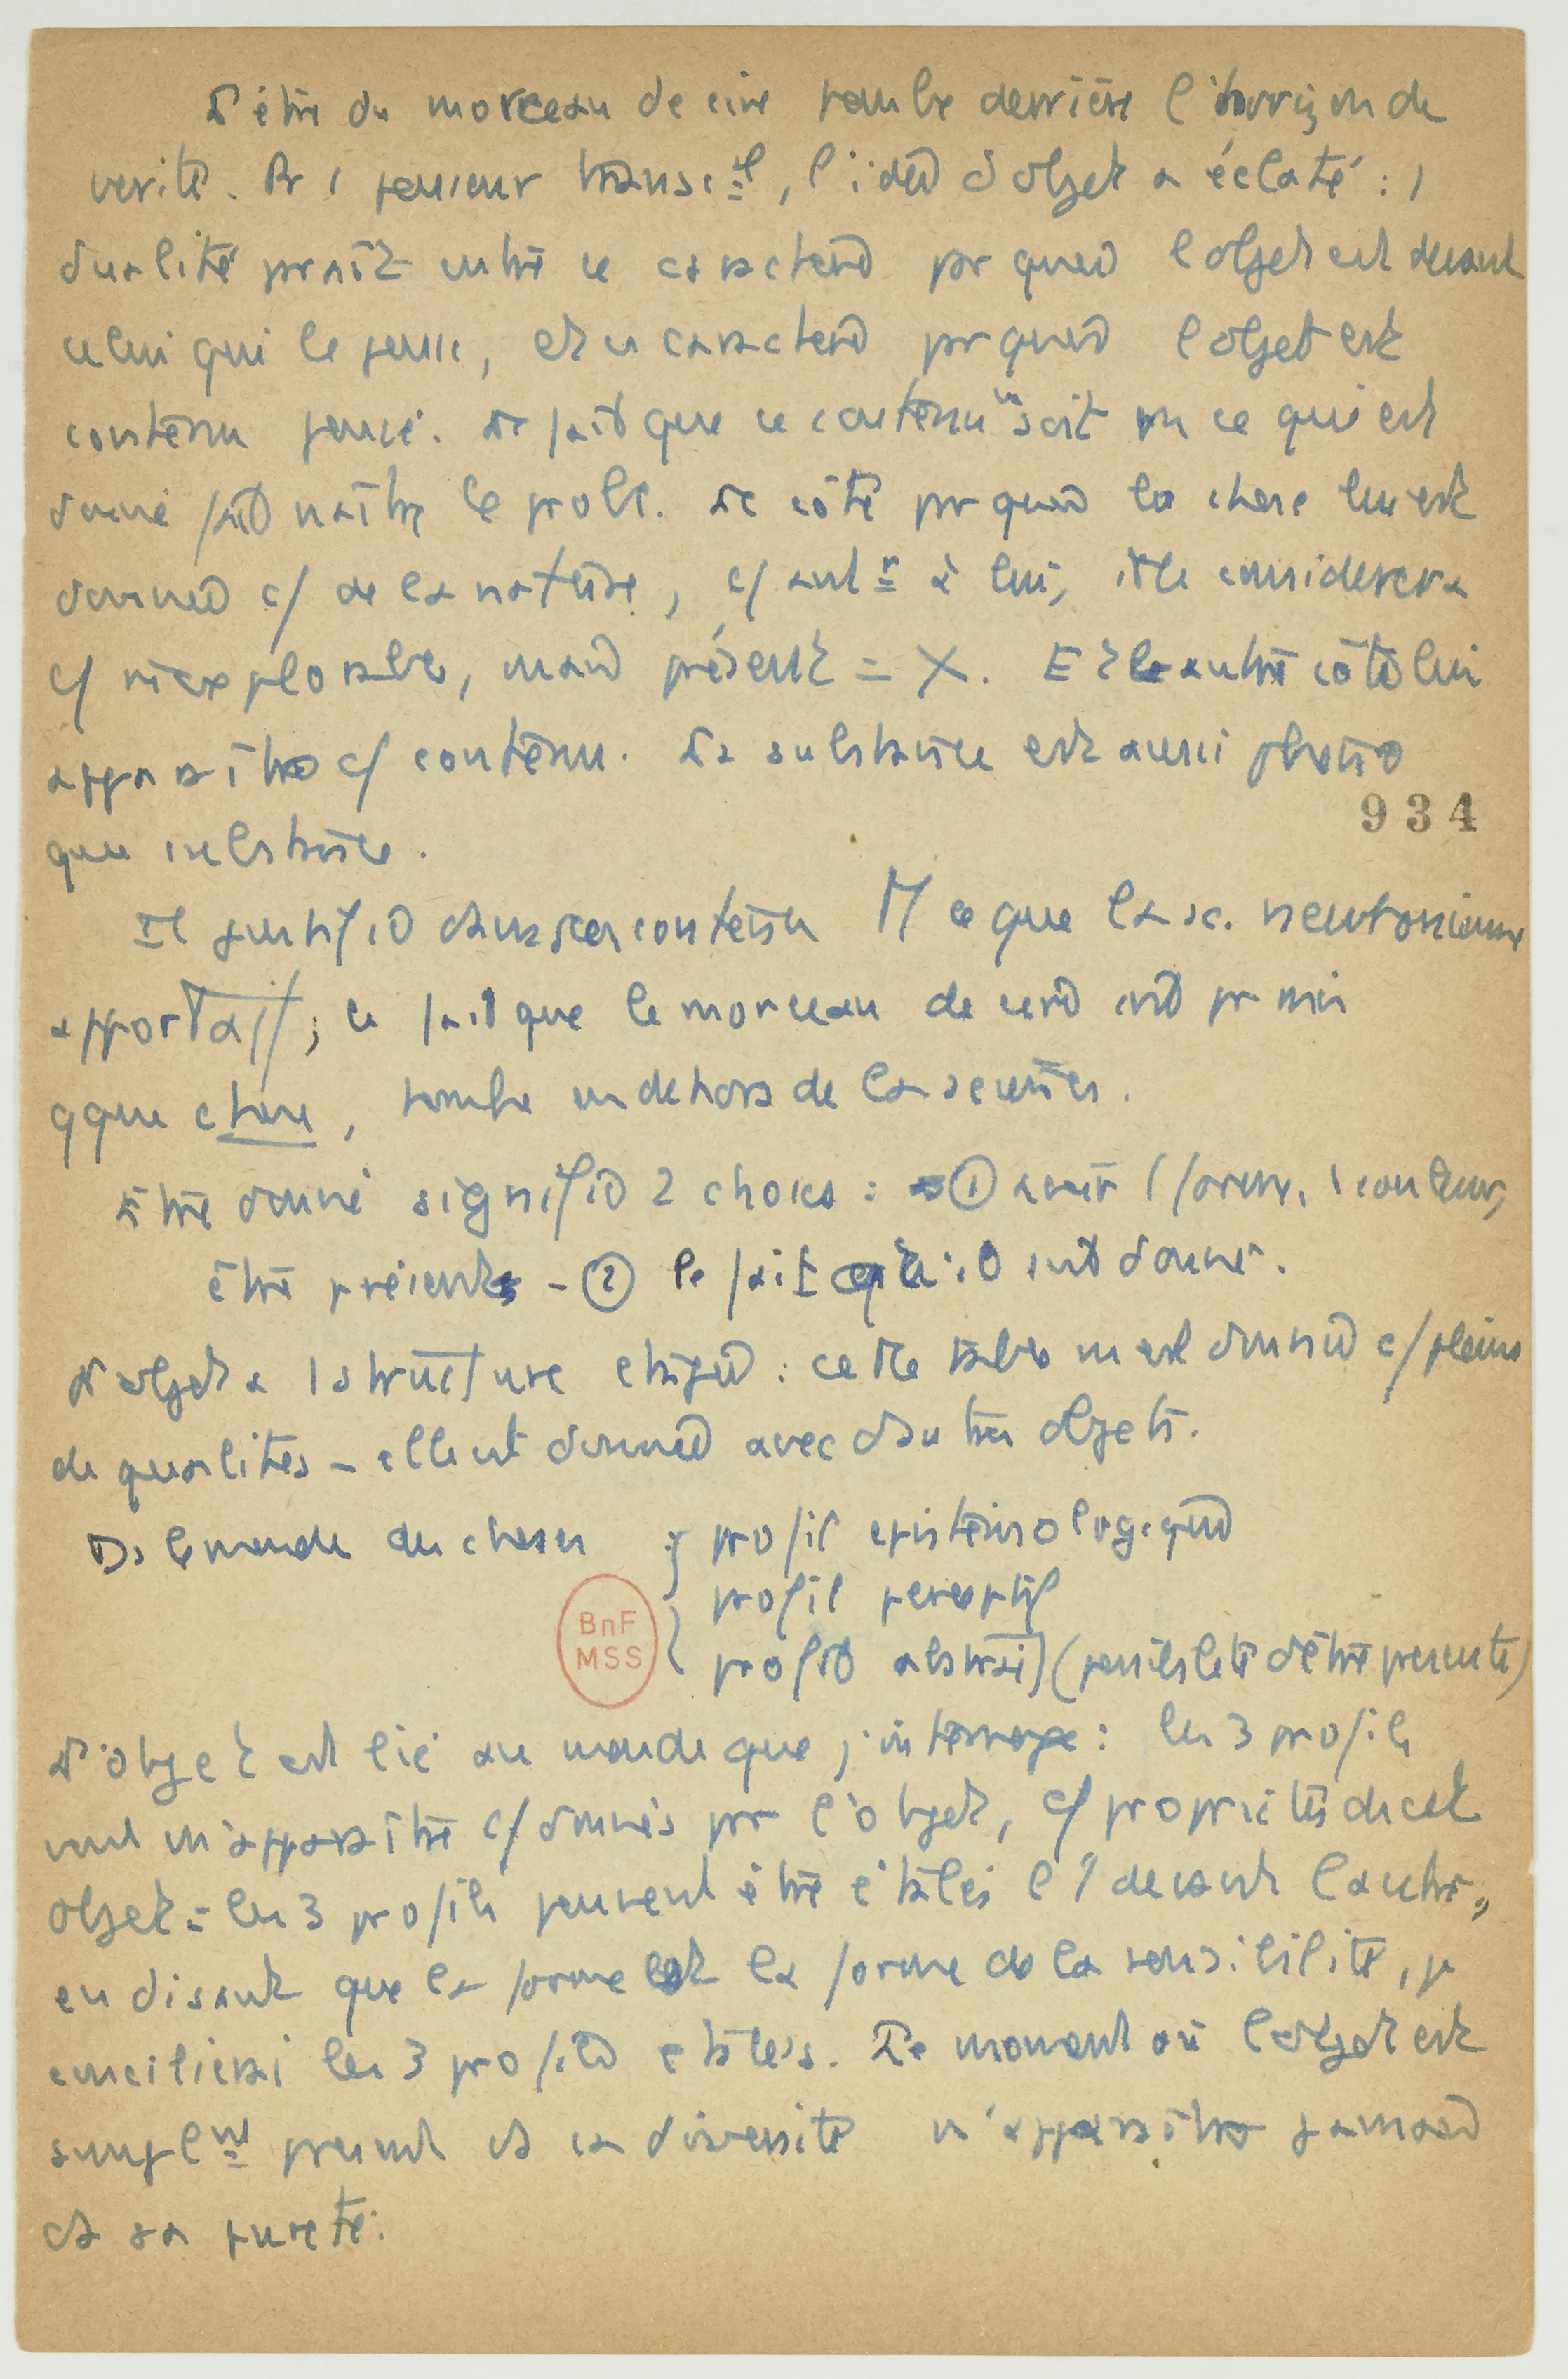 L'être du morceau de cire tombe derrière l'horizon de
vérité. Pr 1 penseur transc<sup>al</sup>, l'idée d'objet a éclaté : 1
dualité paraît entre ce caractère par quoi l'objet est devant
celui qui le pense, et ce caractère par quoi l'objet est
contenu pensé. Le fait que ce contenu soit ce qui est
donné fait naître le prob. Le côté par quoi la chose lui est
donnée c/ de la nature, c/ ant<sup>r</sup> à lui, il le considèrera
c/ inexplorable, mais présent = X. Et l'autre côté lui
apparaîtra c/ contenu. La substance est aussi
que substance.
934
Il justifie dans son contenu tt ce que la sc. newtonienne
apportait ; le fait que le morceau de cire soit pr moi
qque chose, tombe en dehors de la science.
Être donné signifie 2 choses : ① avoir 1 forme, 1 couleur,
être présent - ② le fait qu'il soit donné.
L'objet a 1 structure étagée : cette table m'est donnée c/ pleine
de qualités - elle est donnée avec d'autres objets.
Ds le monde des choses : } profil épistémologique
profil perceptif
{ profil abstrait (possibilité d'être présente)
L'objet est lié au monde que j'interroge : les 3 profils
vont m'apparaître c/ donnés par l'objet, c/ propriétés de cet
objet = les 3 profils peuvent être étalés l'1 devant l'autre,
en disant que la forme est la forme de la sensibilité, je
concilierai les 3 profils étalés. Le moment où l'objet est
simpl<sup>nt</sup> présent ds sa diversité n'apparaîtra jamais
ds sa pureté.
BnF
MSS